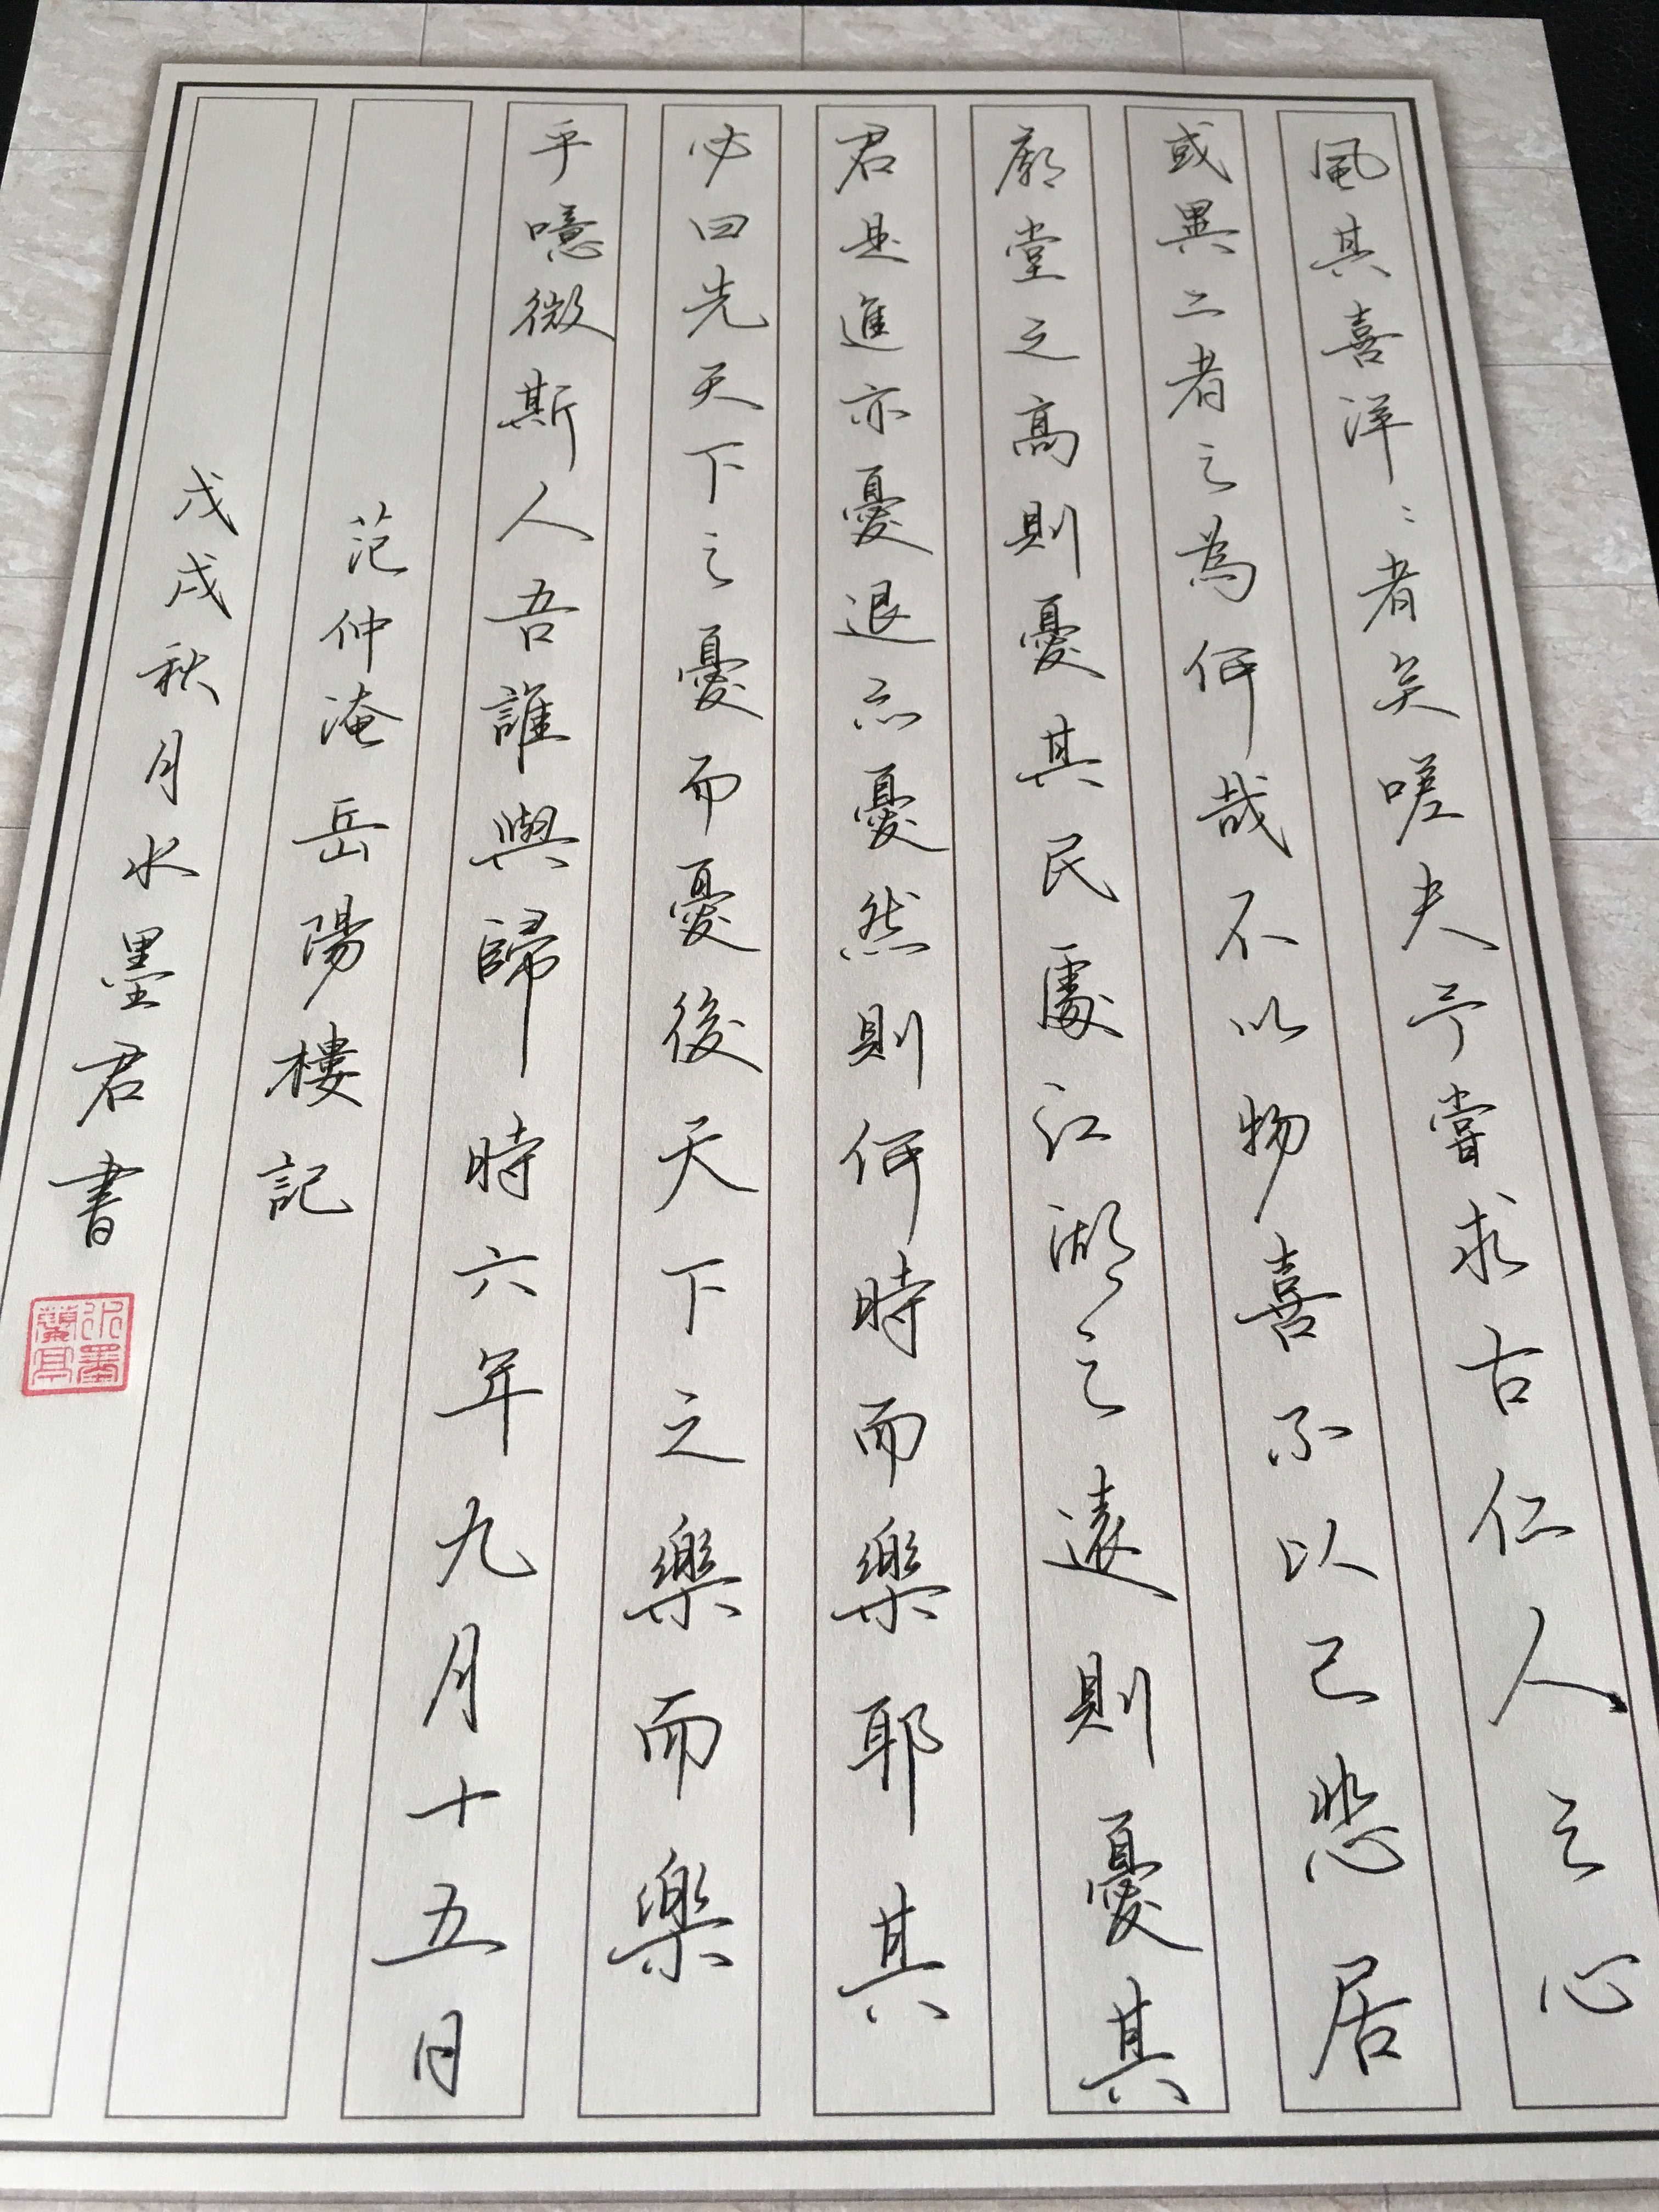 風其喜洋〻者矣嗟夫予嘗求古仁人之心
或異二者之為何哉不以物喜不以己悲居
廟堂之高則憂其民處江湖之遠則憂其
君是進亦憂退亦憂然則何時而樂耶其
必曰先天下之憂而憂後天下之樂而樂
乎噫微斯人吾誰與歸時六年九月十五日
范仲淹岳陽樓記
戊戌秋月水墨君書
水墨蘭亭